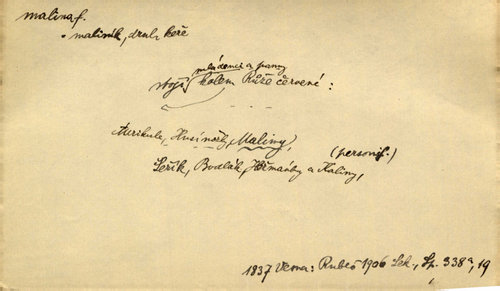 malina f.
- maliník, druh keře
mládenci a panny
stojí kolem Růže červené:
Aurikule, Husí nožky, Maliny, (personif.)
Šeřík, Bodlák, Heřmánky a Kaliny,
1837 Vesna: Rubeš 1906 Sek., Sp. 338a, 19